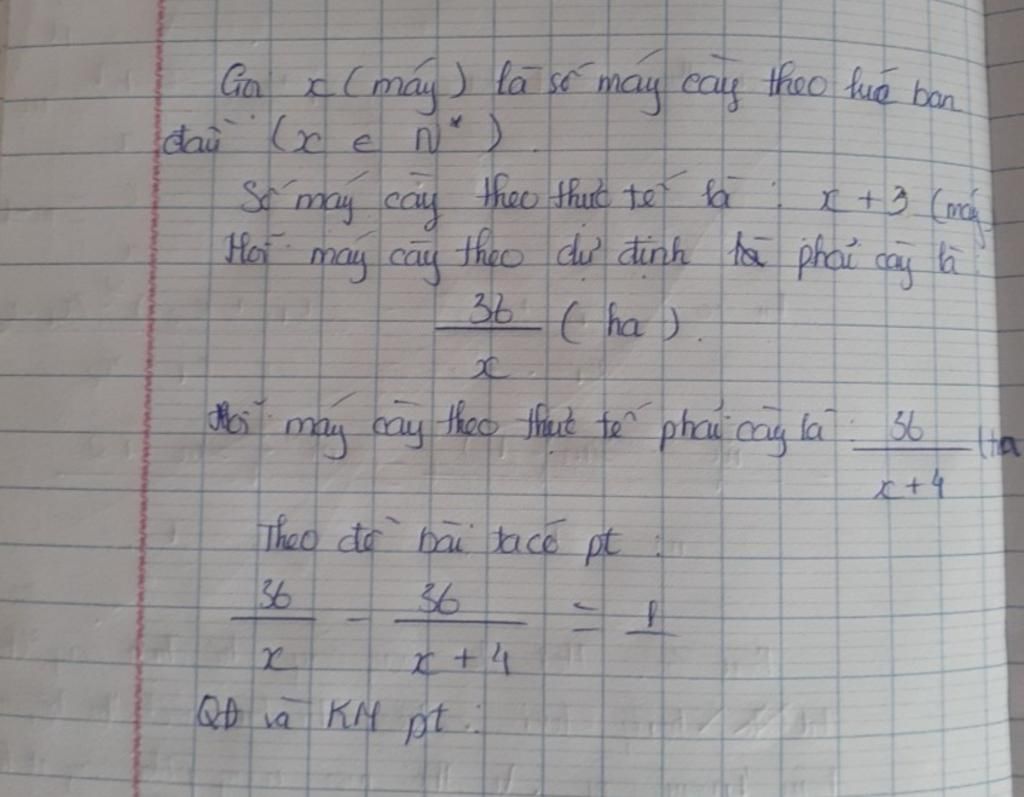 Gọi x (máy) là số máy cày theo lúc ban
đầu (x ∈ N*).
Số máy cày theo thực tế là : x + 3 (máy
Mỗi máy cày theo dự định phải cày là :
36/x (ha).
Mỗi máy cày theo thực tế phải cày là : 36/(x + 4) (ha
Theo đề bài ta có pt :
36/x - 36/(x + 4) = 1
QĐ và KM pt :